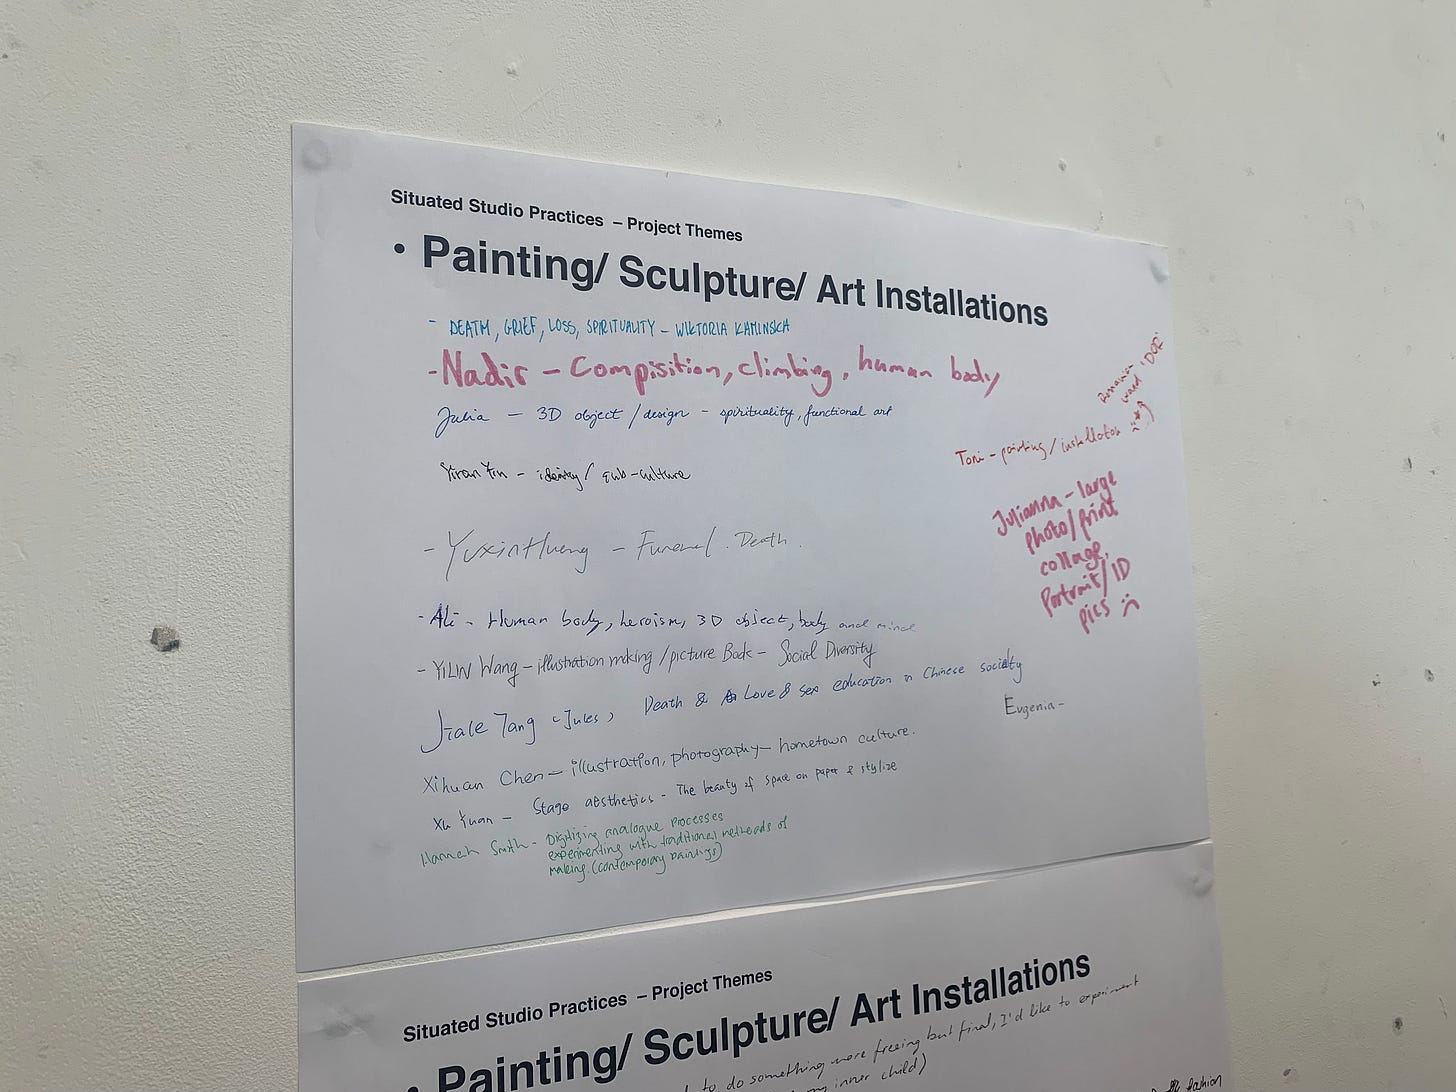 Situated Studio Practices – Project Themes
• Painting/ Sculpture/ Art Installations
- DEATH, GRIEF, LOSS, SPIRITUALITY – WIKTORIA KAMINSKA
- Nadir – Compisition, climbing, human body
Julia – 3D object / design – spirituality, functional art
Yiran Yin – identity / sub-culture
- Yuxin Huang – Funeral. Death.
- Ali - Human body, heroism, 3D object, body and mind
- YiLIN Wang – illustration making / picture Book – Social Diversity
Jiale Tang (Jules) Death & Love & sex education in Chinese society
Xihuan Chen – illustration, photography – hometown culture.
Xu Yuan – Stage aesthetics - The beauty of space on paper & stylize
Hannah Smith - Digitizing analogue processes
experimenting with traditional methods of
making. (contemporary paintings)
Toni - painting / installation
'DOR'
Julianna – large
photo/print
collage,
Portrait/ID
pics
Evgenia –
Situated Studio Practices – Project Themes
• Painting/ Sculpture/ Art Installations
to do something more freeing but final, I'd like to experiment
my inner child)
fashion